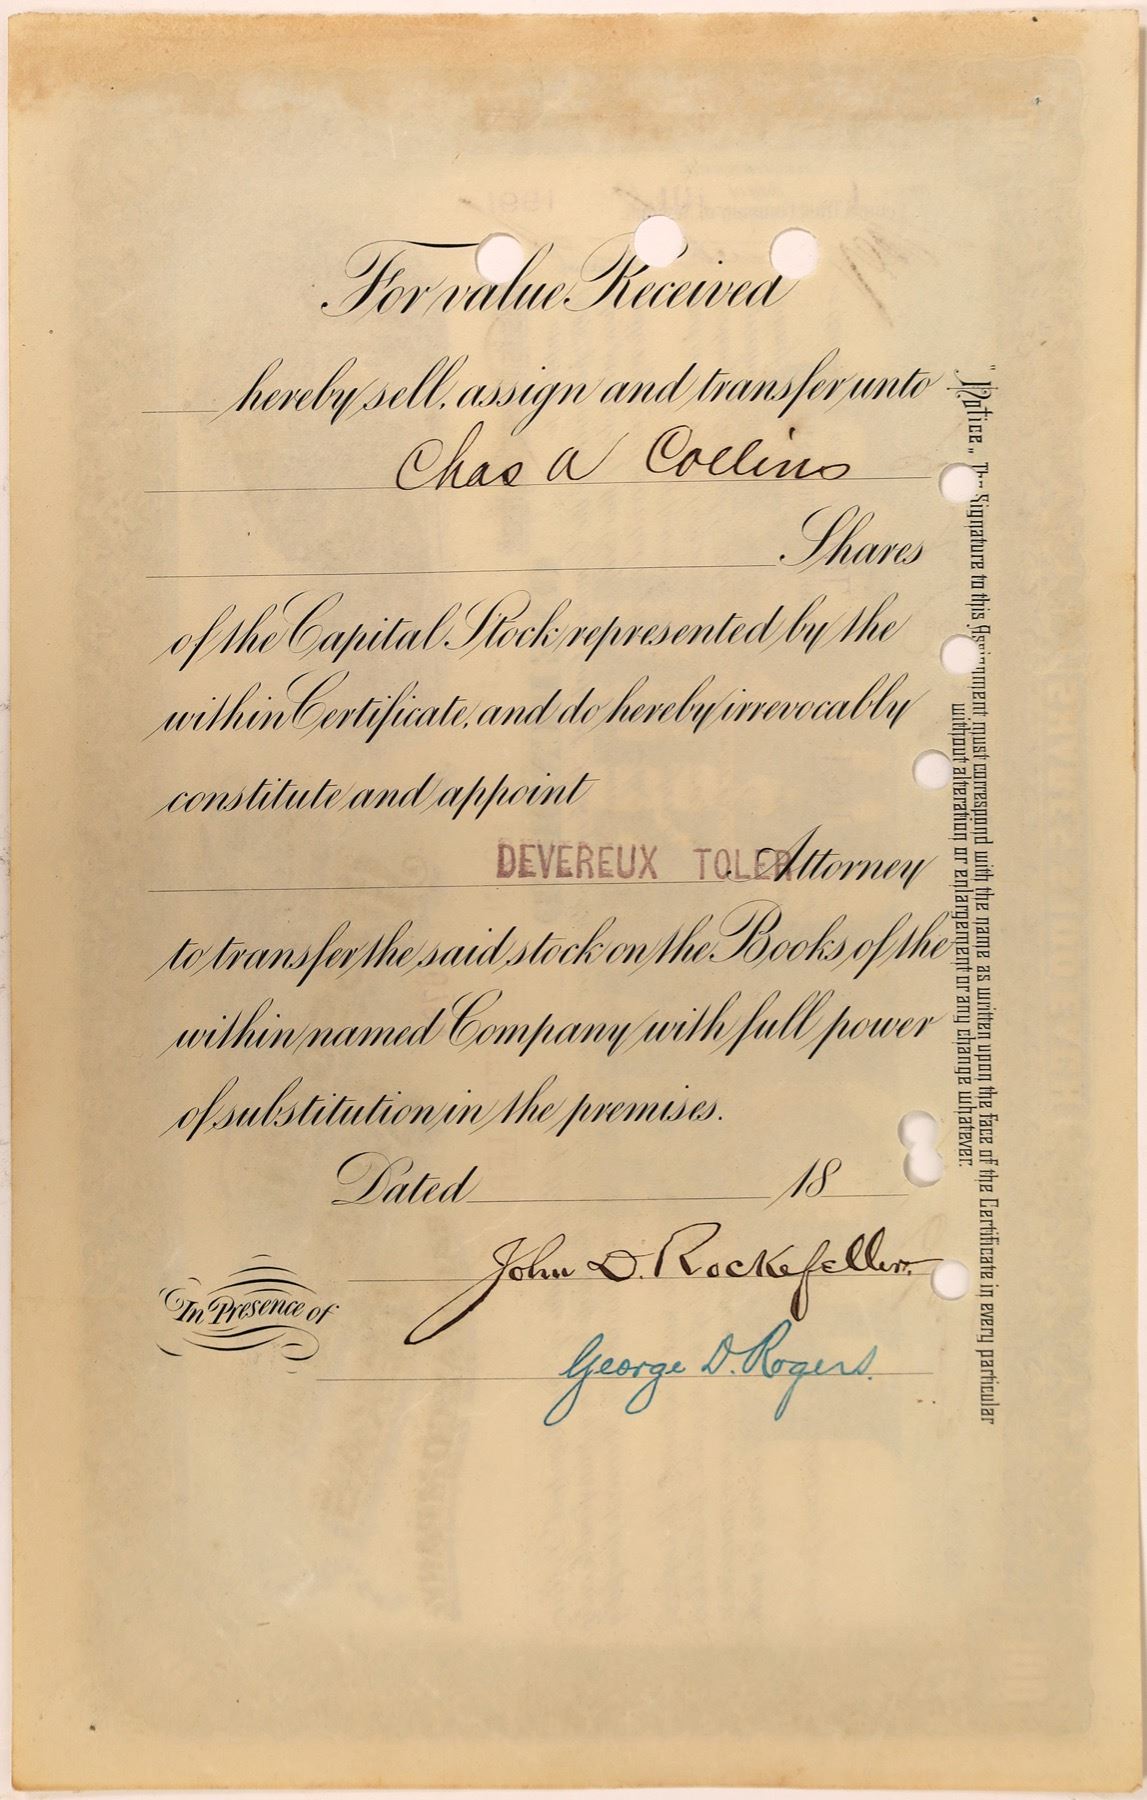 For value Received
hereby sell, assign and transfer unto
Chas A Collins
Shares
of the Capital Stock represented by the
within Certificate, and do hereby irrevocably
constitute and appoint
DEVEREUX TOLER Attorney
to transfer the said stock on the Books of the
within named Company with full power
of substitution in the premises.
Dated 18
John D. Rockefeller
In Presence of
George D. Rogers.
"Notice." The Signature to this Assignment must correspond with the name as written upon the face of the Certificate in every particular
without alteration or enlargement or any change whatever.